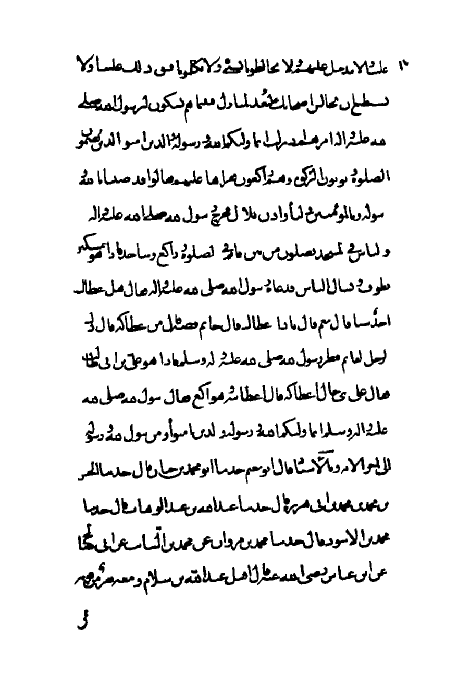 ولا ذلك علينا ولا
نستطيع ان نجالس اصحابك لبعد المنازل فبينما هم يشكون لرسول الله صلى
الله عليه واله امرهم اذ نزلت انما وليكم الله ورسوله والذين امنوا الذين يقيمون
الصلوة ويوتون الزكوة وهم راكعون فقراها عليهم فقالوا قد رضينا بالله
ورسوله وبالمومنين قال واذن بلال فخرج رسول الله صلى الله عليه واله
والناس في المسجد يصلون من بين قائم في الصلوة وراكع وساجد فاذا هو بمسكين
يطوف ويسال الناس فدعاه رسول الله صلى الله عليه واله فقال هل اعطاك
احد شيئا قال نعم قال ماذا اعطاك قال خاتم فضة قال من اعطاكه قال ذاك
الرجل القائم فنظر رسول الله صلى الله عليه واله وسلم فاذا هو علي بن ابي طالب
فقال على اي حال اعطاكه قال اعطانيه وهو راكع فقال رسول الله صلى الله
عليه واله وسلم انما وليكم الله ورسوله والذين امنوا ومن يتول الله ورسوله
الى اخر الاية وبالاسناد قال ابو نعيم حدثنا ابو محمد بن حيان قال حدثنا الحسن
بن محمد بن ابي هريرة قال حدثنا عبد الله بن عبد الوهاب قال حدثنا
محمد بن الاسود قال حدثنا محمد بن مروان عن محمد بن السائب عن ابي صالح
عن ابن عباس رضي الله عنه قال اقبل عبد الله بن سلام ومعه نفر من قومه